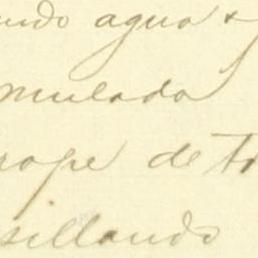 undo agua &
mulada
rope de tr
sillando